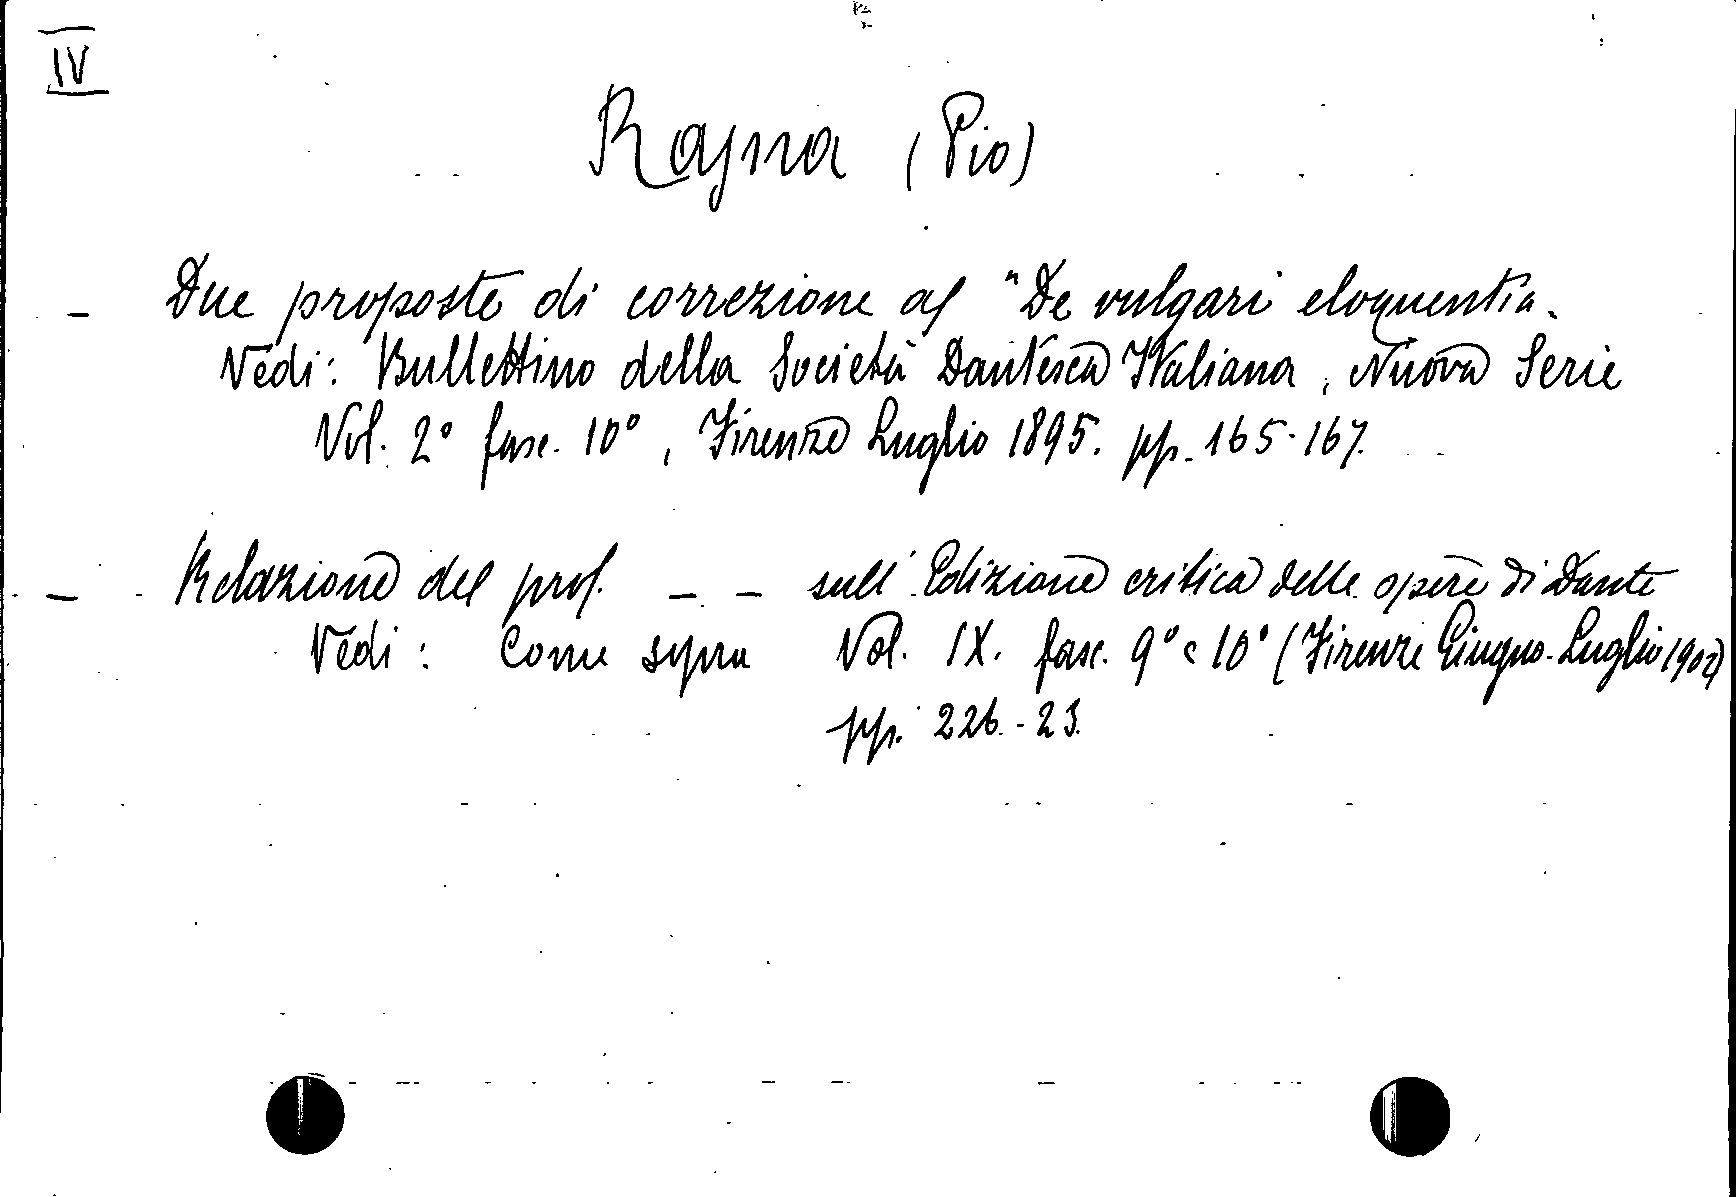 IV
Rajna (Pio)
– Due proposte di correzione al "De vulgari eloquentia.
Vedi: Bullettino della Società Dantesca Italiana, Nuova Serie
Vol. 2° fasc. 10°, Firenze Luglio 1895. pp. 165-167.
– Relazione del prof. – – sull'Edizione critica delle opere di Dante
Vedi: Come sopra Vol. IX. fasc. 9° e 10° (Firenze Giugno-Luglio 1902)
pp. 226.-23.